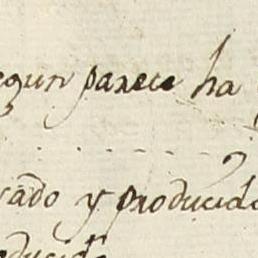 egun parece ha
sado y producido
oducido